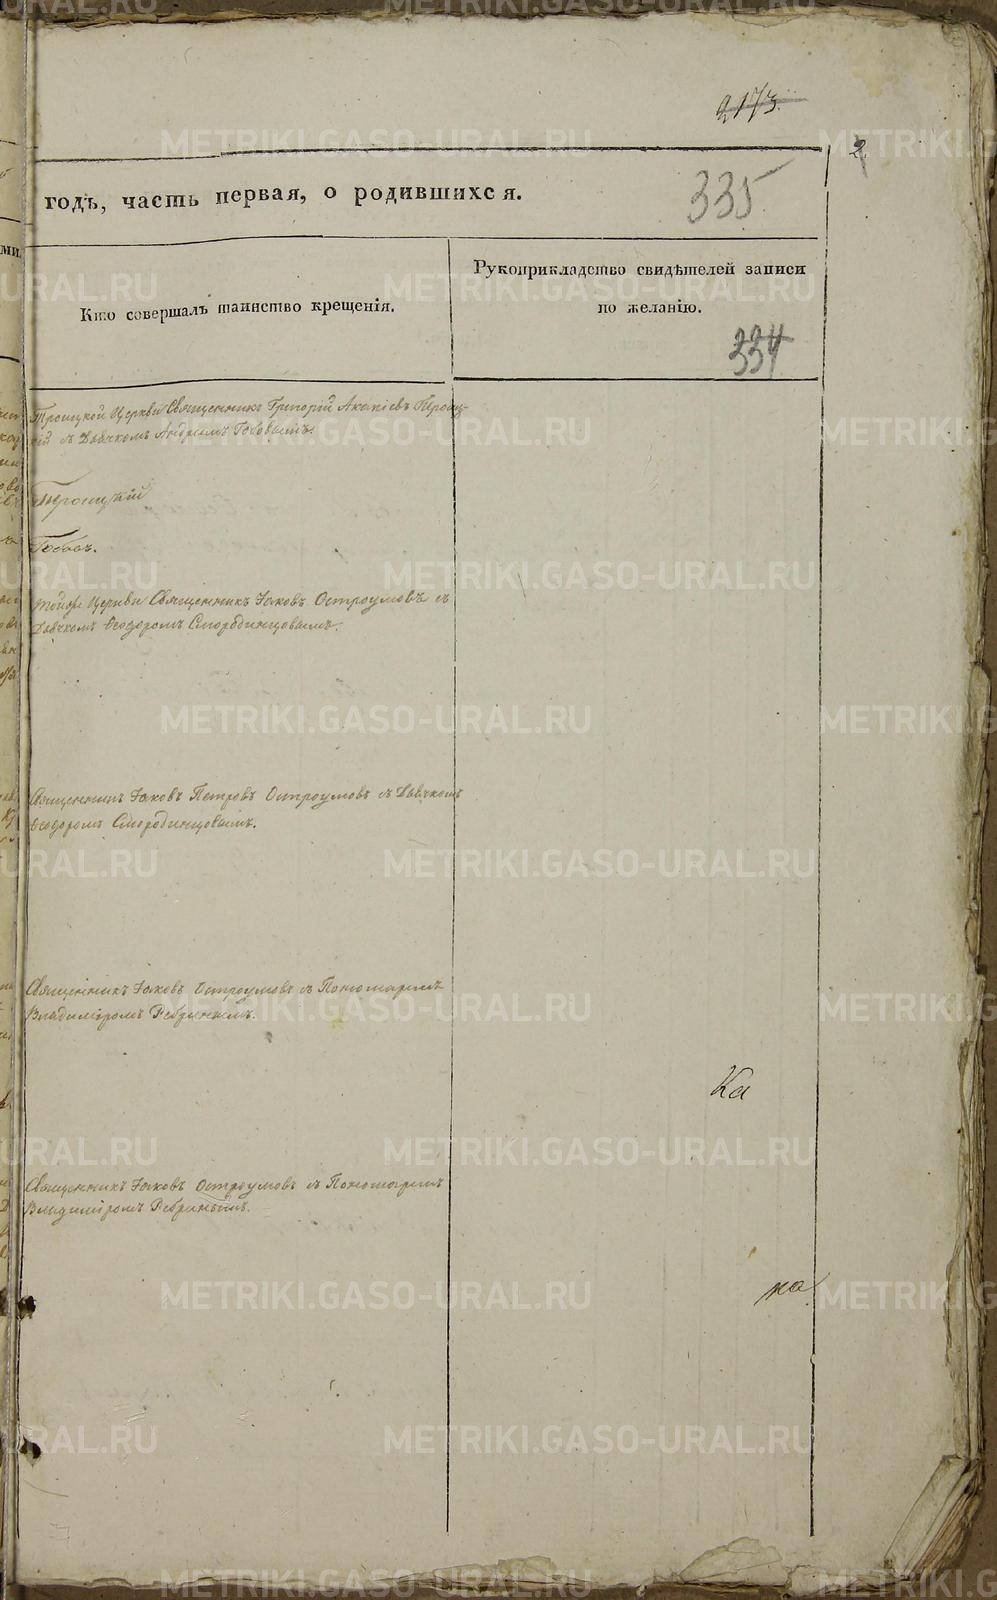 2173.
2
годъ, часть первая, о родившихся.
335
Кто совершалъ таинство крещенія.
Рукоприкладство свидѣтелей записи
по желанію.
334
Троицкой Церкви Священникъ Григорій
съ Дьячкомъ Андреемъ

тойже Церкви Священникъ Іаковъ Остроумовъ съ
Дьячкомъ Ѳеодоромъ Смородинцовымъ.
Священникъ Іаковъ Петровъ Остроумовъ съ Дьячкомъ
Ѳеодоромъ Смородинцовымъ.
Священникъ Іаковъ Остроумовъ съ Пономаремъ
Владиміромъ Ребринымъ.
Ка
Священникъ Іаковъ Остроумовъ съ Пономаремъ
Владиміромъ Ребринымъ.
ка
METRIKI.GASO-URAL.RU